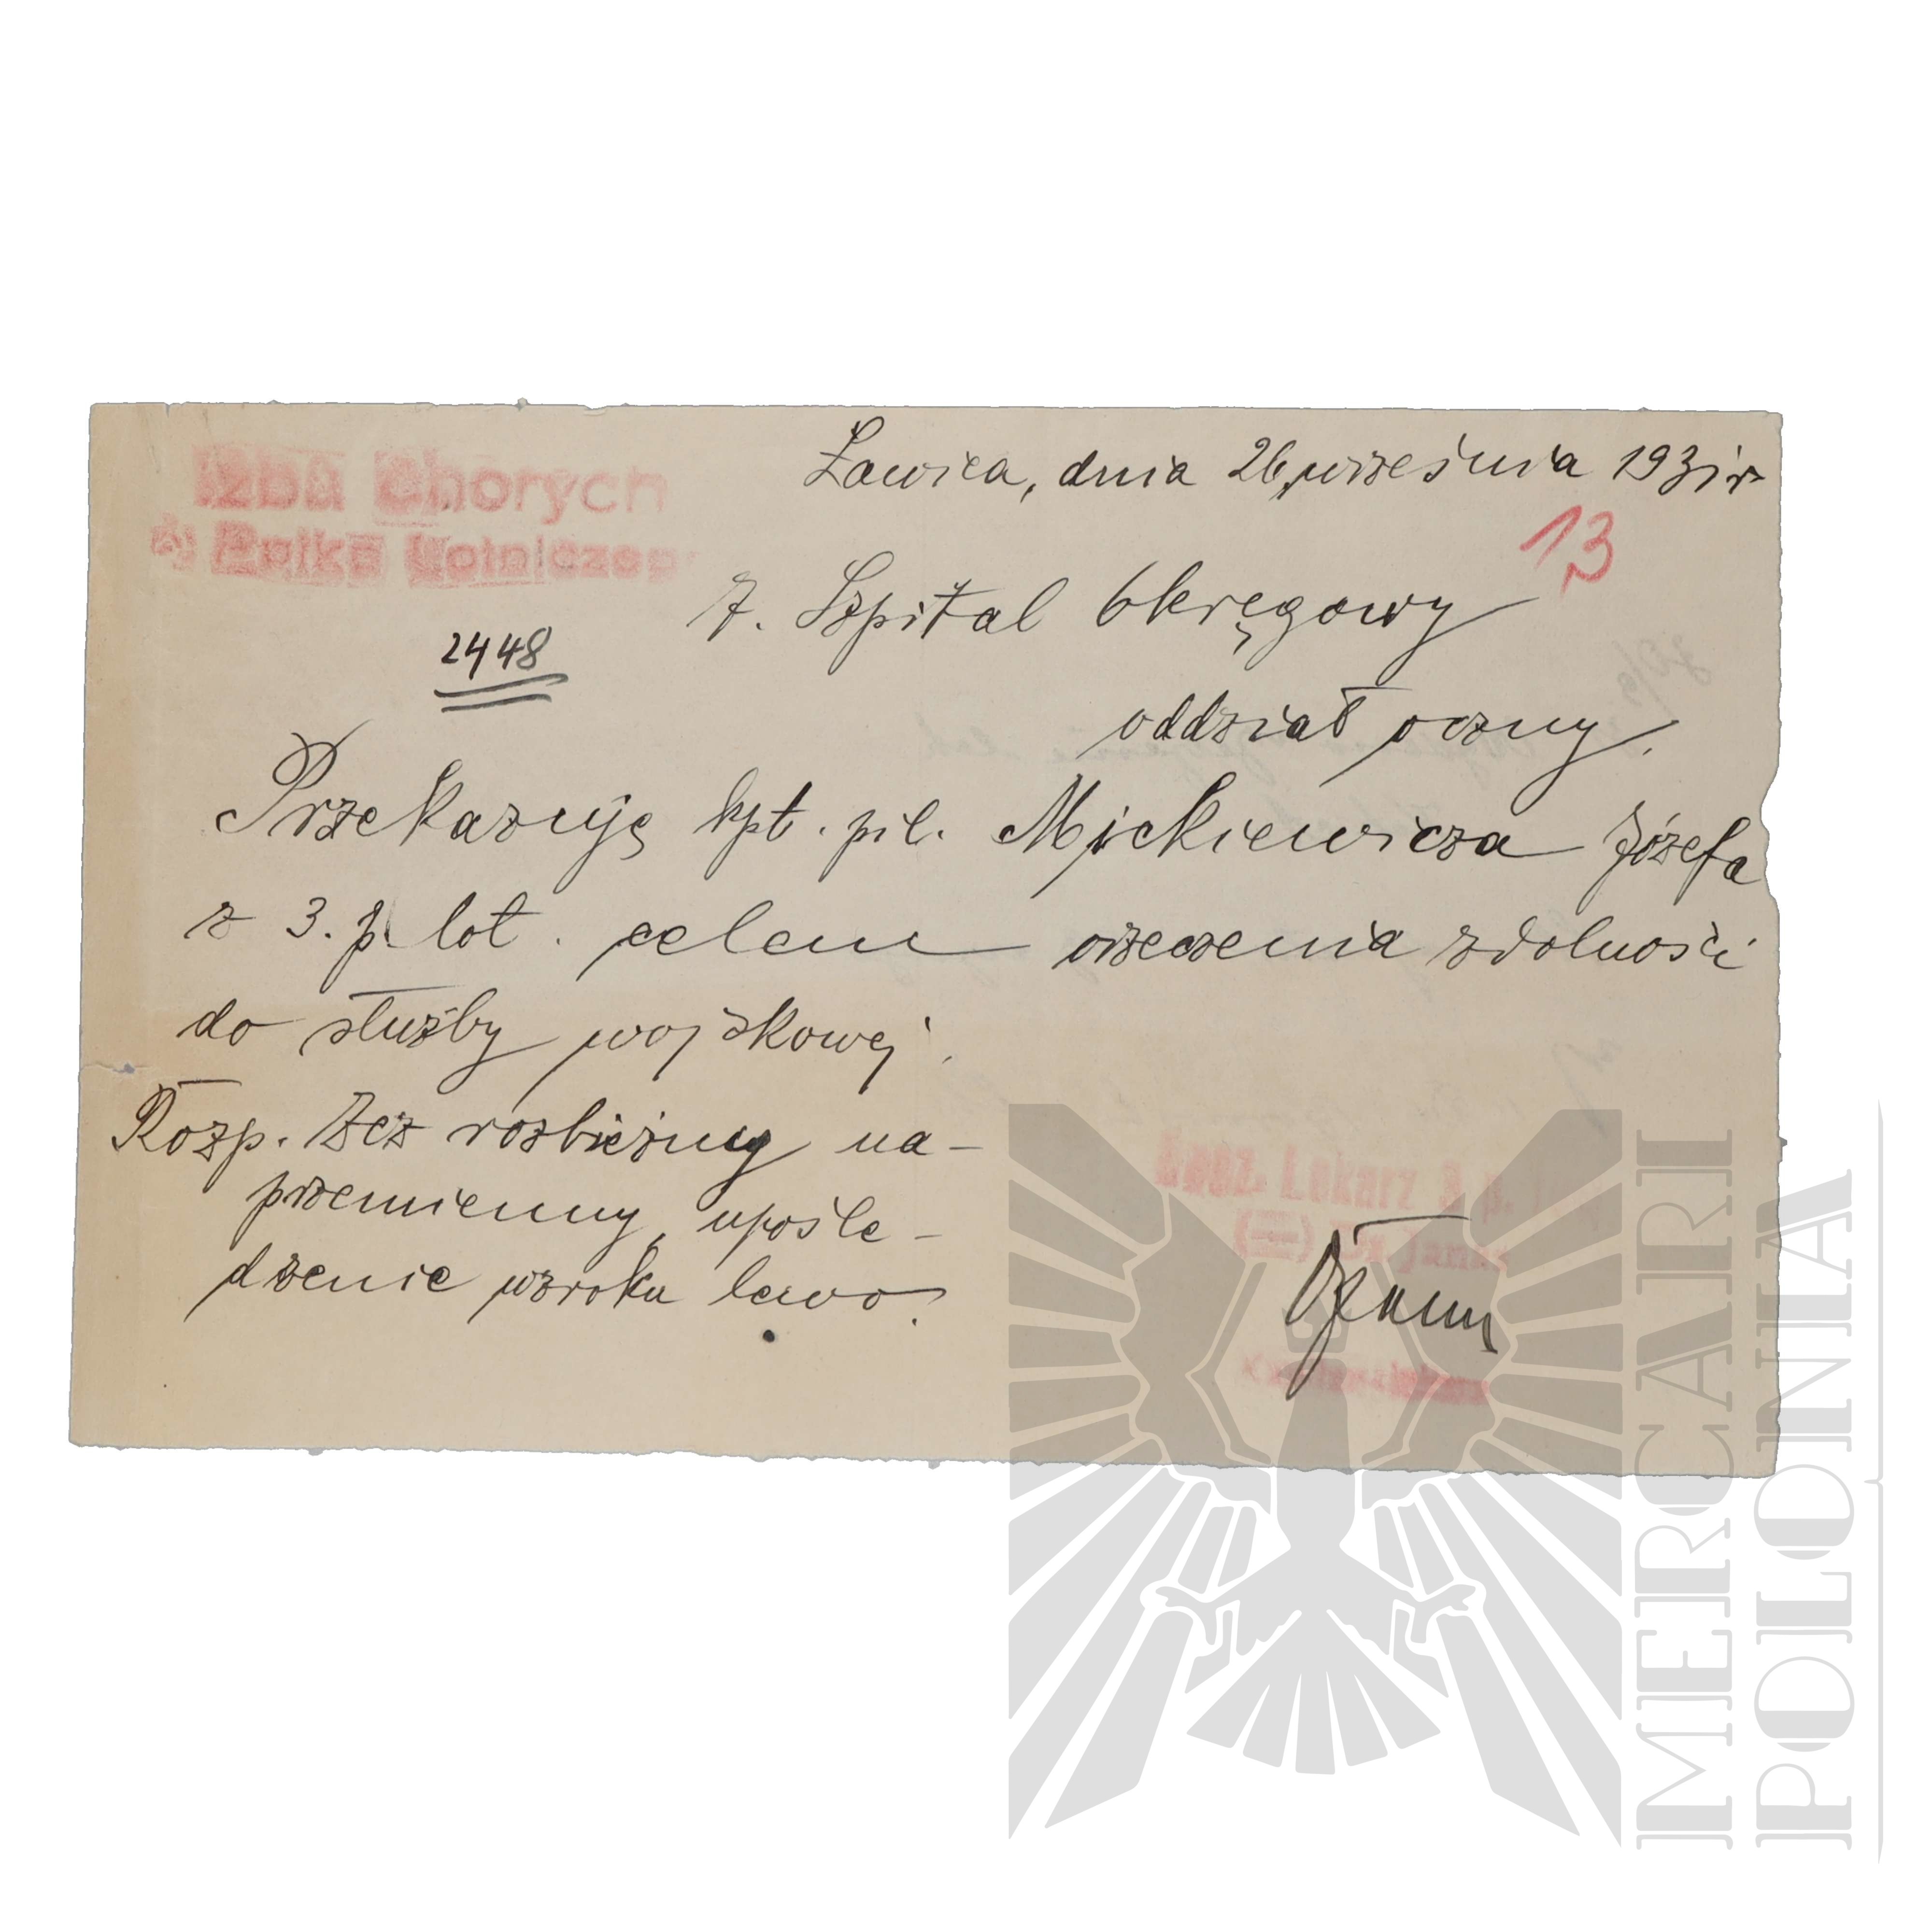 Izba Chorych
Pułku Lotniczego
Ławica, dnia 26 września 1931 r
13
7. Szpital Okręgowy
2448
oddział oczny.
Przekazuję kpt. pil. Mickiewicza Józefa
z 3. p. lot. celem orzeczenia zdolności
do służby wojskowej.
Rozp. Zez rozbieżny na-
przemienny, upośle-
dzenie wzroku lewo.
Lekarz 3 p.
Dr
IMERCARI
POLONIA